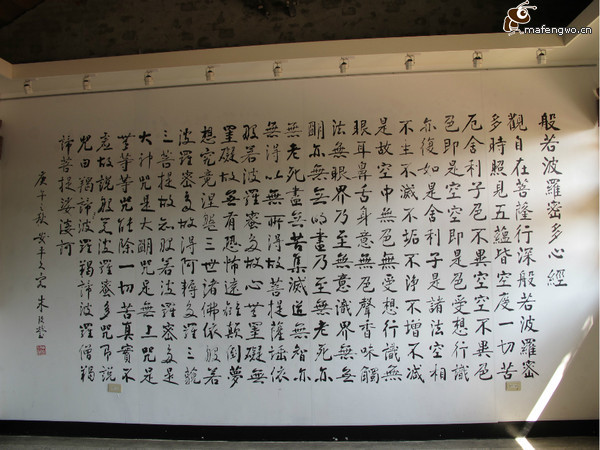 般若波羅密多心經
觀自在菩薩行深般若波羅密
多時照見五蘊皆空度一切苦
厄舍利子色不異空空不異色
色即是空空即是色受想行識
亦復如是舍利子是諸法空相
不生不滅不垢不淨不增不減
是故空中無色無受想行識無
眼耳鼻舌身意無色聲香味觸
法無眼界乃至無意識界無無
明亦無無明盡乃至無老死亦
無老死盡無苦集滅道無智亦
無得以無所得故菩提薩埵依
般若波羅密多故心無罣礙無
罣礙故無有恐怖遠離顛倒夢
想究竟涅槃三世諸佛依般若
波羅密多故得阿耨多羅三藐
三菩提故知般若波羅密多是
大神咒是大明咒是無上咒是
無等等咒能除一切苦真實不
虛故說般若波羅密多咒即說
咒曰羯諦波羅羯諦波羅僧羯
諦菩提娑婆訶
庚午秋
mafengwo.cn